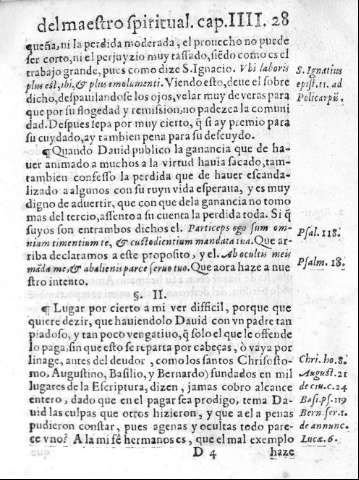 del maestro spiritual. cap. IIII. 28
queña, ni la perdida moderada, el prouecho no puede
ser corto, ni el perjuyzio muy tassado, siẽdo como es el
trabajo grande, pues como dize S. Ignacio. Vbi laboris
plus est, ibi, & plus emolumenti. Viendo esto, deue el sobre
dicho, despauilandose los ojos, velar muy de veras para
que por su flogedad y remission, no padezca la comuni
dad. Despues sepa por muy cierto, q̃ si ay premio para
su cuydado, ay tambien pena para su descuydo.
S. Ignatius
epist. 11. ad
Policarpũ.
¶ Quando Dauid publico la ganancia que de ha-
uer animado a muchos a la virtud hauia sacado, tam-
tambien confesso la perdida que de hauer escanda-
lizado a algunos con su ruyn vida esperaua, y es muy
digno de aduertir, que con que dela ganancia no tomo
mas del tercio, assento a su cuenta la perdida toda. Si q̃
suyos son entrambos dichos el. Particeps ego sum om-
nium timentium te, & custodientium mandata tua. Que ar-
riba declaramos a este proposito, y el. Ab ocultis meis
mũda me, & ab alienis parce seruo tuo. Que aora haze a nue
stro intento.
Psal. 118.
Psalm. 18.
§. II.
¶ Lugar por cierto a mi ver difficil, porque que
quiere dezir, que hauiendolo Dauid con vn padre tan
piadoso, y tan poco vengatiuo, q̃ solo el que le ofende
lo paga, sin que esto se reparta por cabeças, ò vaya por
linage, antes del deudor, como los santos Chrisosto-
mo, Augustino, Basilio, y Bernardo) fundados en mil
lugares de la Escriptura, dizen, jamas cobro alcance
entero, dado que en el pagar sea prodigo, tema Da-
uid las culpas que otros hizieron, y que a el a penas
pudieron constar, pues agenas y ocultas todo pare-
ce vno? A la mi fé hermanos es, que el mal exemplo
Chri. ho. 8.
August. 21
de ciu. c. 24
Basi. ps. 119
Bern ser. 1.
de annunc.
Lucæ. 6.
D 4 haze